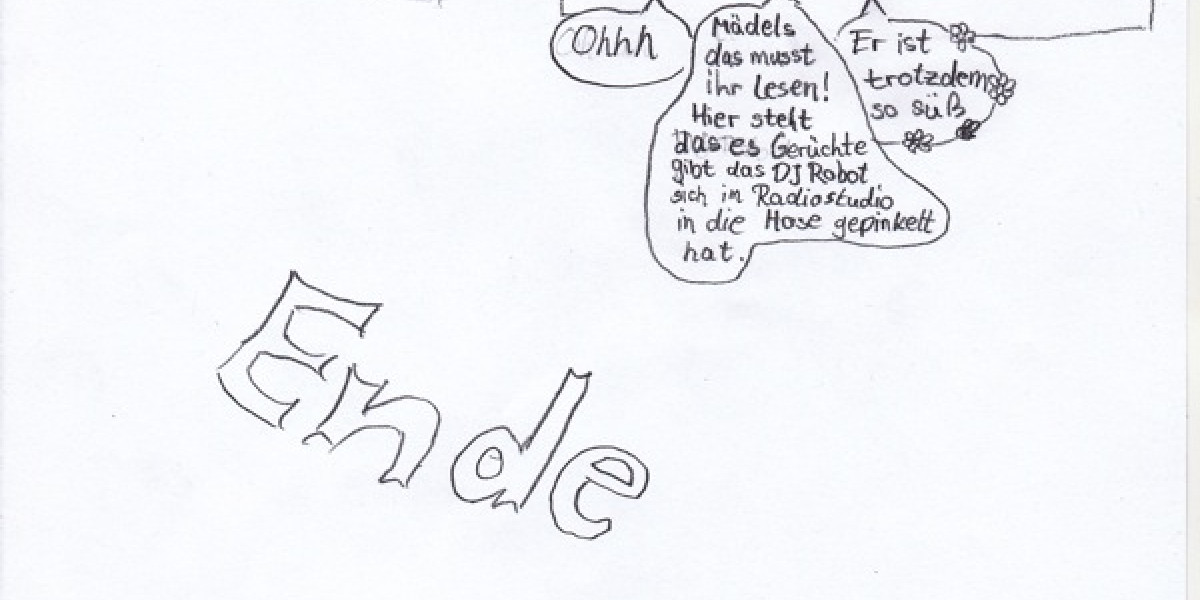 Ohhh
Mädels
das musst
ihr Lesen!
Hier steht
das es Gerüchte
gibt das DJ Robot
sich im Radiostudio
in die Hose gepinkelt
hat.
Er ist
trotzdem
so süß
Ende